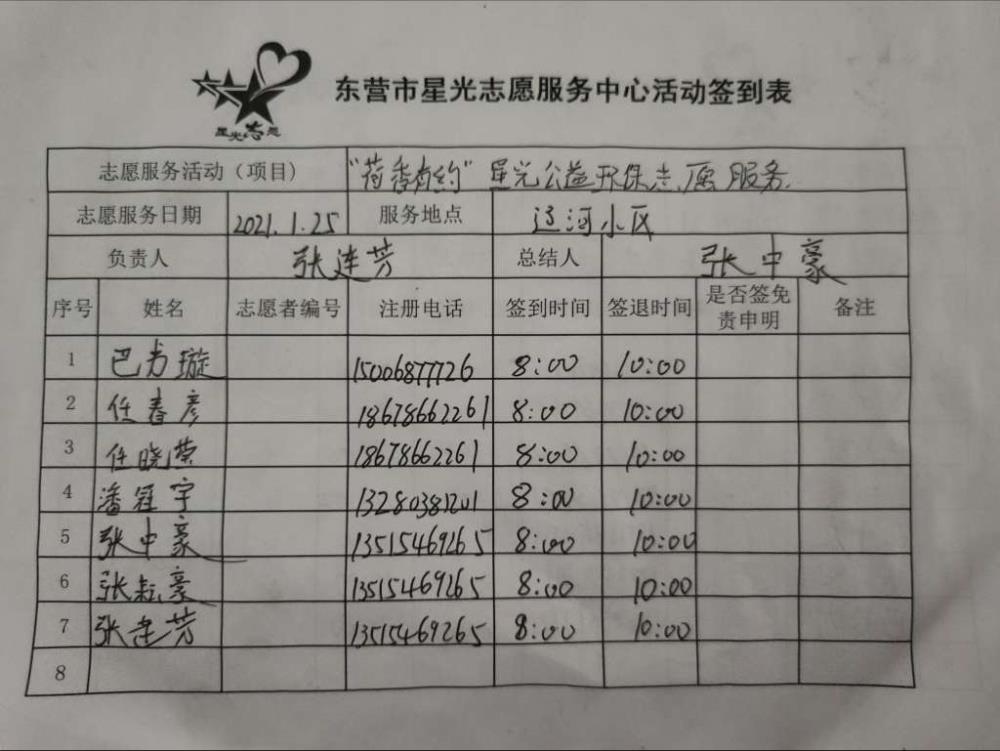 东营市星光志愿服务中心活动签到表
星光志愿
志愿服务活动（项目） “荷香有约”星光公益环保志愿服务
志愿服务日期 2021.1.25 服务地点 辽河小区
负责人 张连芳 总结人 张中豪
序号 姓名 志愿者编号 注册电话 签到时间 签退时间 是否签免责申明 备注
1 巴书璇 15006877726 8:00 10:00
2 任春彦 18678662261 8:00 10:00
3 任晓荣 18678662261 8:00 10:00
4 潘冠宇 13280381201 8:00 10:00
5 张中豪 13515469265 8:00 10:00
6 张 豪 13515469265 8:00 10:00
7 张连芳 13515469265 8:00 10:00
8